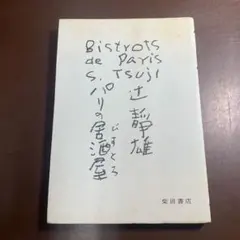 Bistrots
de Paris
S. Tsuji
辻静雄
パリの居酒屋
びすとろ
柴田書店